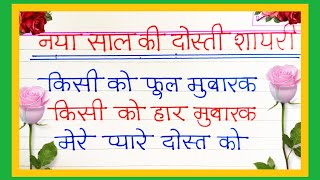 नया साल की दोस्ती शायरी
किसी को फुल मुबारक
किसी को हार मुबारक
मेरे प्यारे दोस्त को